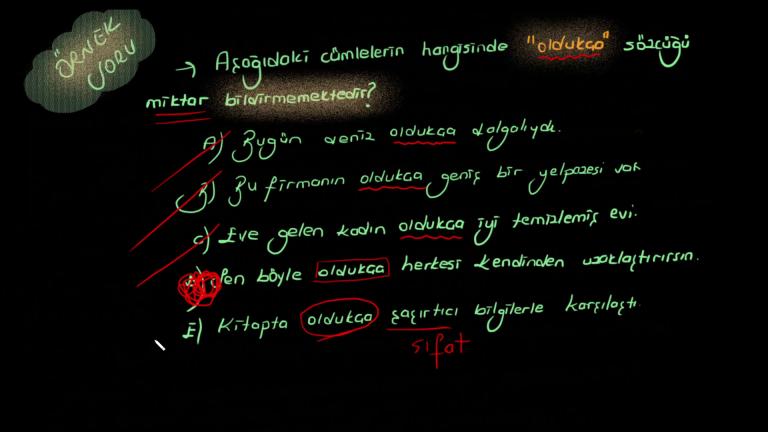 ÖRNEK
SORU
→ Aşağıdaki cümlelerin hangisinde "oldukça" sözcüğü
miktar bildirmemektedir?
A) Bugün deniz oldukça dalgalıydı.
B) Bu firmanın oldukça geniş bir yelpazesi var.
C) Eve gelen kadın oldukça iyi temizlemiş evi.
Sen böyle oldukça herkesi kendinden uzaklaştırırsın.
E) Kitapta oldukça şaşırtıcı bilgilerle karşılaştı.
sıfat